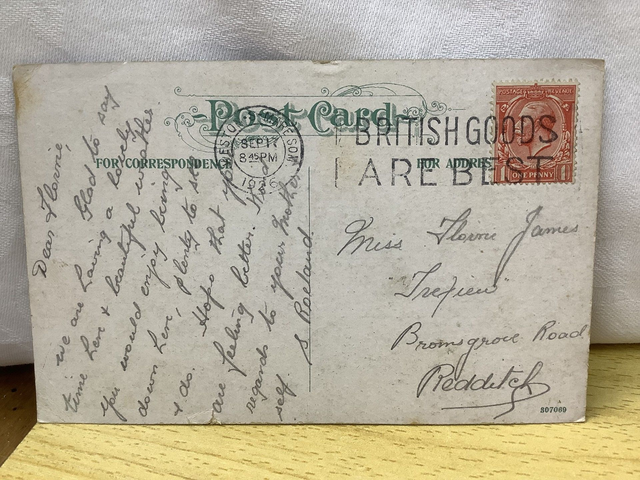 Post Card
FOR CORRESPONDENCE
FOR ADDRESS
SEP 17
8 45 PM
1926
BRITISH GOODS
ARE BEST
POSTAGE REVENUE
ONE PENNY
Dear Florrie
Glad to say
we are having a lovely
time here & beautiful weather
you would enjoy being
down here, plenty to see
& do. Hope that you
are feeling better.
regards to your mother
self.
S
Miss Florrie James
Bromsgrove Road
Redditch
807069